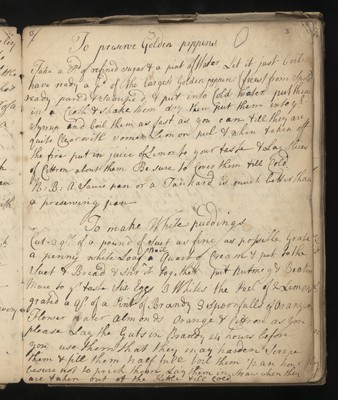 3
To preserve Golden pippins
Take a lb of refined sugar & a pint of Water Let it just boil
have ready a lb of the Largest Golden pippens
ready pared & put into Cold Water put them
in a Cloth & shake them dry then put them into
Syrrup and boil them as fast as you can till they are
quite Clear with some Lemon peel & when taken off
the fire put in juice of Lemon to your taste & Lay slices
of Cittron about them Be sure to Cover them till Cold
N:B: A Sauce pan or a Tankard is much better than
a preserveing pan
To make White puddings
Cut of a pound of Suet as fine as possible Grate
a penny white Loaf boil a Quart of Cream & put to the
Suet & Bread & stir it together put Nutmeg &
Mace to yr taste Six Eggs 3 Whites the Peel of 2 Lemons
grated a of a Pint of Brandy spoonfulls of Orange
Flower Water Almonds Orange & Cittron as you
please Lay the Guts in Brandy 24 hours before
you use them that they may harden
them & fill them half full boil them an hour
besure not to prick them Lay them in straw when they
are taken out of the till Cold